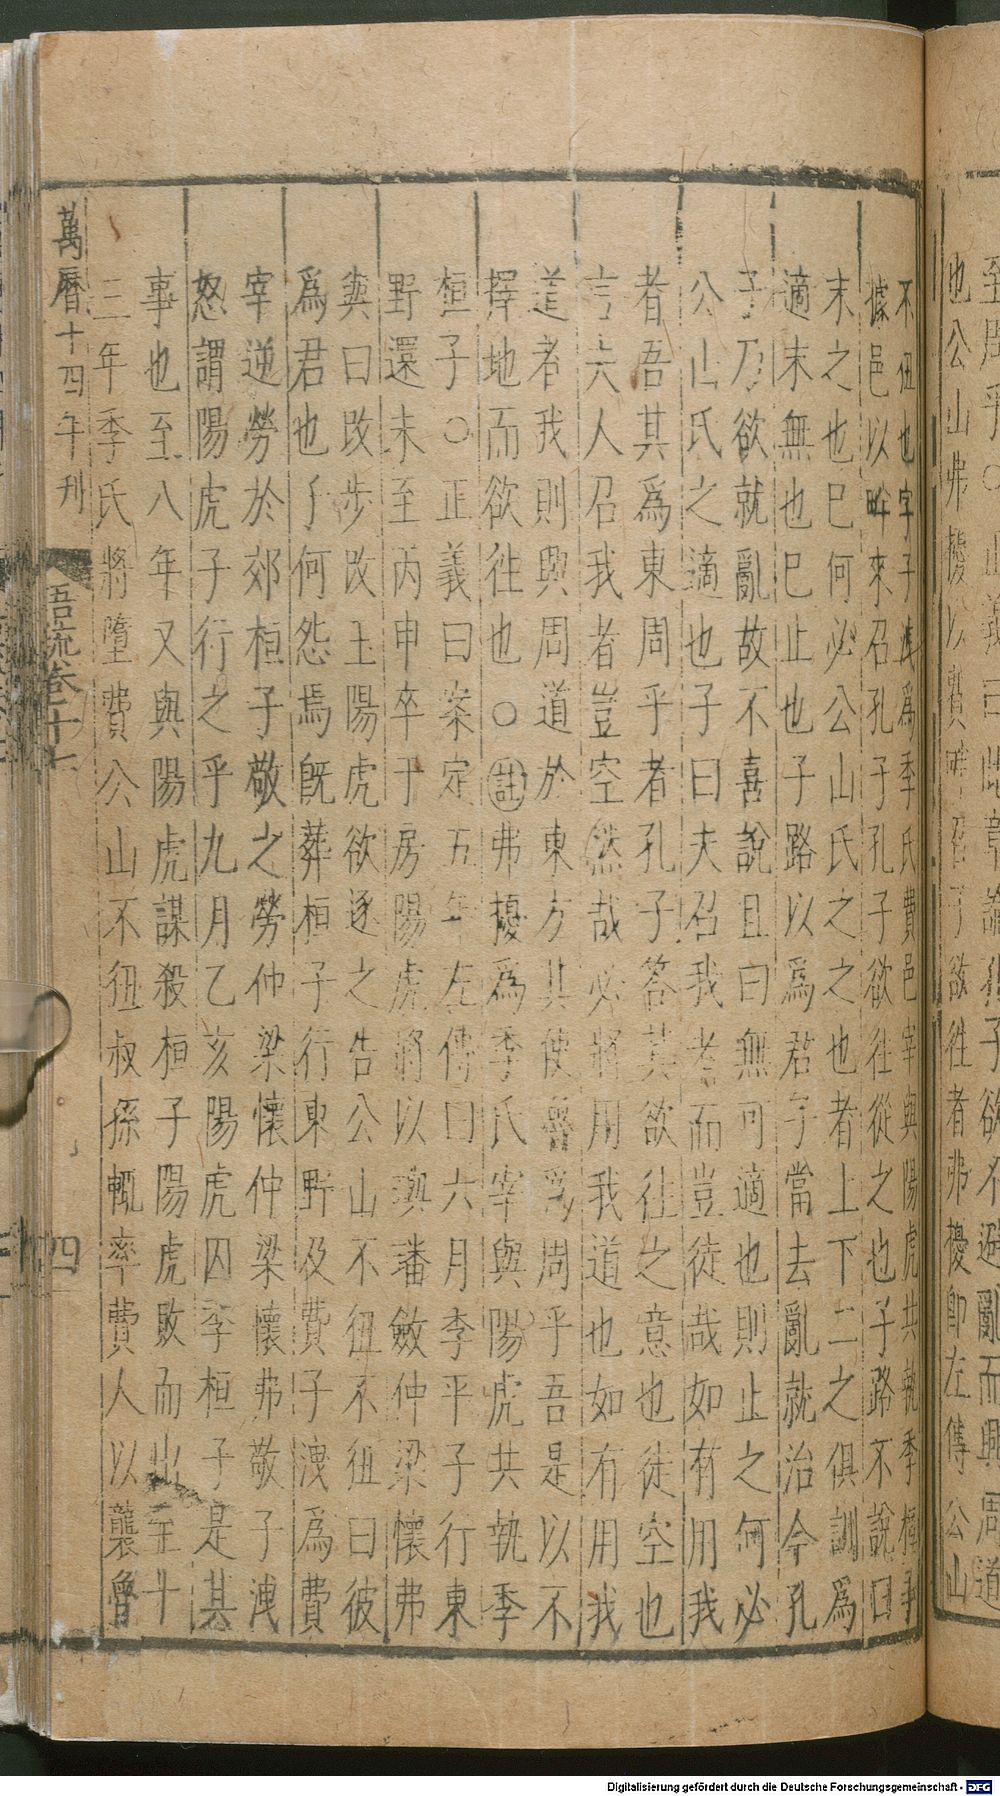 至周乎○正義曰此章論孔子欲不避亂而興周道
也公山弗擾以費畔召子欲往者弗擾即左傳公山
不狃也字子洩爲季氏費邑宰與陽虎共執季桓子
據邑以畔來召孔子孔子欲往從之也子路不說曰
末之也已何必公山氏之之也者上下二之俱訓爲
適末無也已止也子路以爲君子當去亂就治今孔
子乃欲就亂故不喜說且曰無可適也則止之何必
公山氏之適也子曰夫召我者而豈徒哉如有用我
者吾其爲東周乎者孔子荅其欲往之意也徒空也
言夫人召我者豈空然哉必將用我道也如有用我
道者我則興周道於東方其使魯爲周乎吾是以不
擇地而欲往也○註弗擾爲季氏宰與陽虎共執季
桓子○正義曰案定五年左傳曰六月季平子行東
野還未至丙申卒于房陽虎將以璵璠斂仲梁懷弗
與曰改步改玉陽虎欲逐之告公山不狃不狃曰彼
爲君也子何怨焉旣葬桓子行東野及費子洩爲費
宰逆勞於郊桓子敬之勞仲梁懷仲梁懷弗敬子洩
怒謂陽虎子行之乎九月乙亥陽虎囚季桓子是其
事也至八年又與陽虎謀殺桓子陽虎敗而出至十
三年季氏將墮費公山不狃叔孫輒率費人以襲魯
萬曆十四年刊
語疏卷十七
四
Digitalisierung gefördert durch die Deutsche Forschungsgemeinschaft - DFG